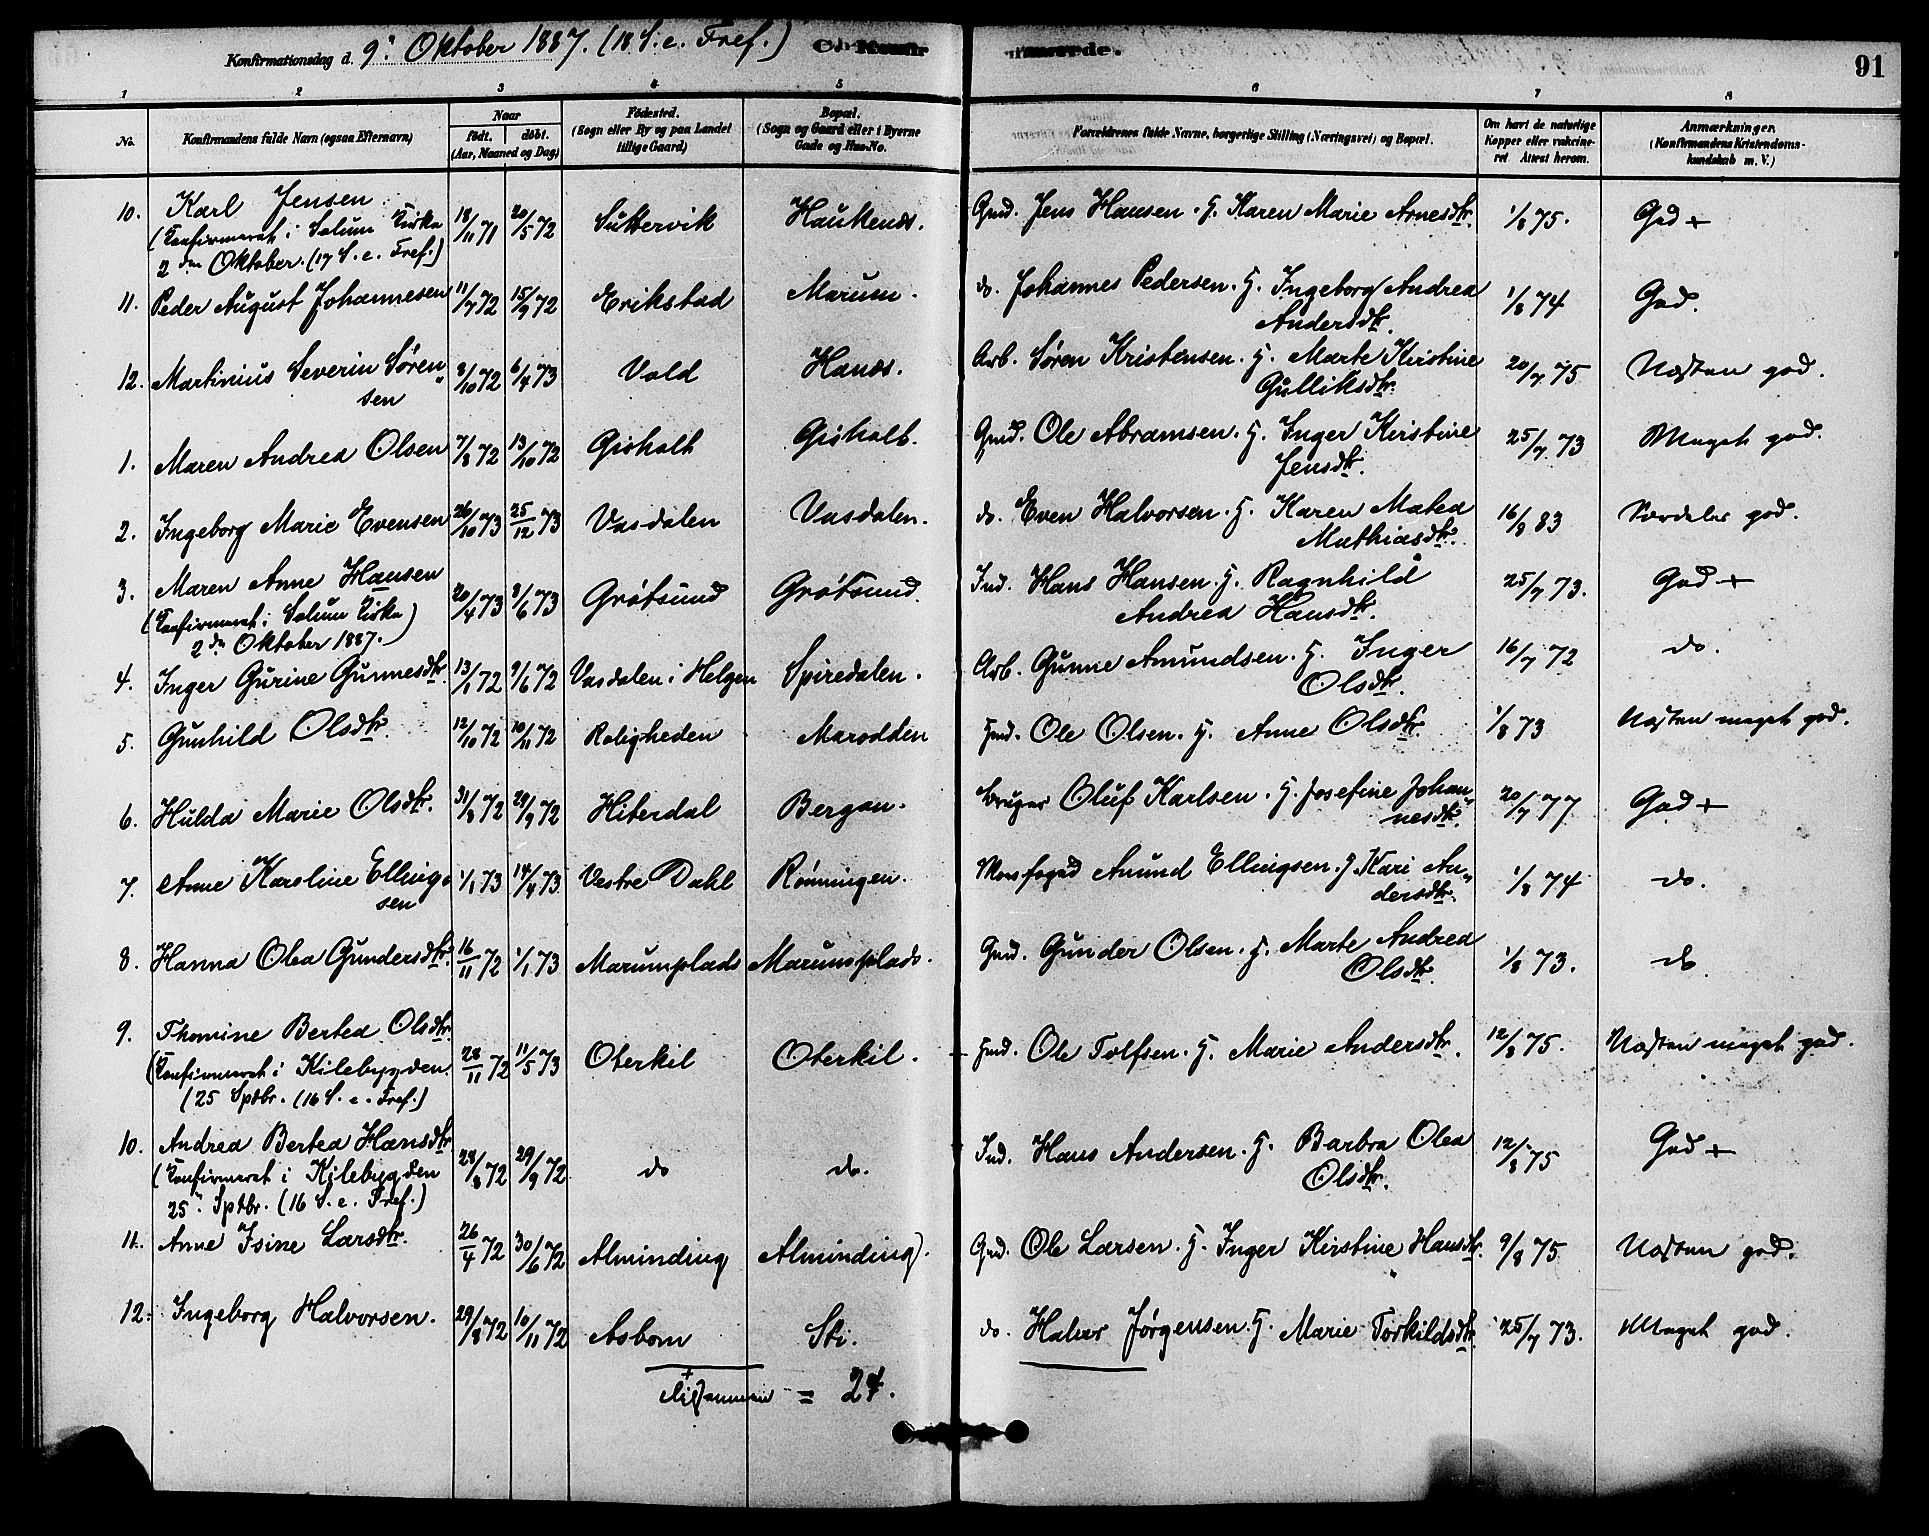 Konfirmationsdag d. 9: Oktober 1887. (18 S. e. Tref.)
91
1 2 3 4 5 6 7 8
No.
Konfirmandens fulde Navn (ogsaa Efternavn)
Naar
født. døbt.
(Aar, Maaned og Dag)
Fødested.
(Sogn eller By og paa Landet
tillige Gaard)
Bopæl.
(Sogn og Gaard eller i Byerne
Gade og Hus-No.
Forældrenes fulde Navne, borgerlige Stilling (Næringsvei) og Bopæl.
Om havt de naturlige
Kopper eller vakcine-
ret Attest herom.
Anmærkninger.
(Konfirmandens Kristendoms-
kundskab m. V.)
10. Karl Jensen 18/11 71 20/5 72 Suttervik Haukenes. Gmd. Jens Hansen. H. Karen Marie Arnesdtr. 1/8 75. God +
(Konfirmeret i Solum Kirke
2den Oktober. (17 S. e. Tref.)
11. Peder August Johannesen 11/7 72 15/9 72 Erikstad Marum. do. Johannes Pedersen. H. Ingeborg Andrea 1/8 74 God.
Andersdtr.
12. Martinius Severin Søren„ 8/10 72 6/4 73 Vold Hanes. Arb. Søren Kristensen. H. Marte Kirstine 20/7 75 Næsten god.
sen
Gulliksdtr.
1. Maren Andrea Olsen 7/8 72 13/10 72 Gisholt Gisholt. Gmd. Ole Abramsen. H. Inger Kirstine 25/7 73 Meget god.
Jensdtr.
2. Ingeborg Marie Evensen 26/10 73 25/12 73 Vasdalen Vasdalen. do. Even Halvorsen. H. Karen Matea 16/8 83 Særdeles god.
Mathiasdtr.
3. Maren Anne Hansen 20/4 73 8/6 73 Grøtsund Grøtsund. Ind. Hans Hansen. H. Ragnhild 25/7 73. God +
(Konfirmeret i Solum Kirke
2den Oktober 1887.)
Andrea Hansdtr.
4. Inger Gurine Gunnesdtr. 13/1 72 9/6 72 Vasdalen i Helgen Spiredalen. Arb. Gunne Amundsen. H. Inger 16/7 72 do.
Olsdtr.
5. Gunhild Olsdtr. 12/10 72 10/11 72 Roligheden Marodden Hmd. Ole Olsen. H. Anne Olsdtr. 1/8 73 Næsten meget god.
6. Hulda Marie Olsdtr. 31/8 72 29/9 72 Hiterdal Bergan. bruger Oluf Karlsen. H. Josefine Johan„ 20/7 77 God +
nesdtr.
7. Anne Karoline Elling„ 1/1 73 14/4 73 Vestre Dahl Rønningen. Skovfoged Amund Ellingsen. H. Kari An„ 1/8 74 do.
sen
dersdtr.
8. Hanna Olea Gundersdtr. 16/11 72 1/1 73 Marumplads Marumsplads. Gmd. Gunder Olsen. H. Marte Andrea 1/8 73. do.
Olsdtr.
9. Thomine Bertea Olsdtr. 28/11 72 11/5 73 Oterkil Oterkil. Hmd. Ole Tolfsen. H. Marie Andersdtr. 12/8 75. Næsten meget god.
(Konfirmeret i Kilebygden
(25 Sptbr. (16 S. e. Tref.)
10. Andrea Bertea Hansdtr. 28/8 72 29/9 72 do do. Ind. Hans Andersen. H. Barbra Olea 12/8 75 God +
(Konfirmeret i Kilebygden
25: Sptbr. (16 S. e. Tref.)
Olsdtr.
11. Anne Isine Larsdtr. 26/4 72 30/6 72 Alminding Alminding. Gmd. Ole Larsen. H. Inger Kirstine Hansdtr. 9/8 75 Næsten god.
12. Ingeborg Halvorsen. 29/8 72 10/11 72 Asbom Sti. do. Halvor Jørgensen. H. Marie Torkildsdtr. 25/7 73. Meget god.
Tilsammen = 24.